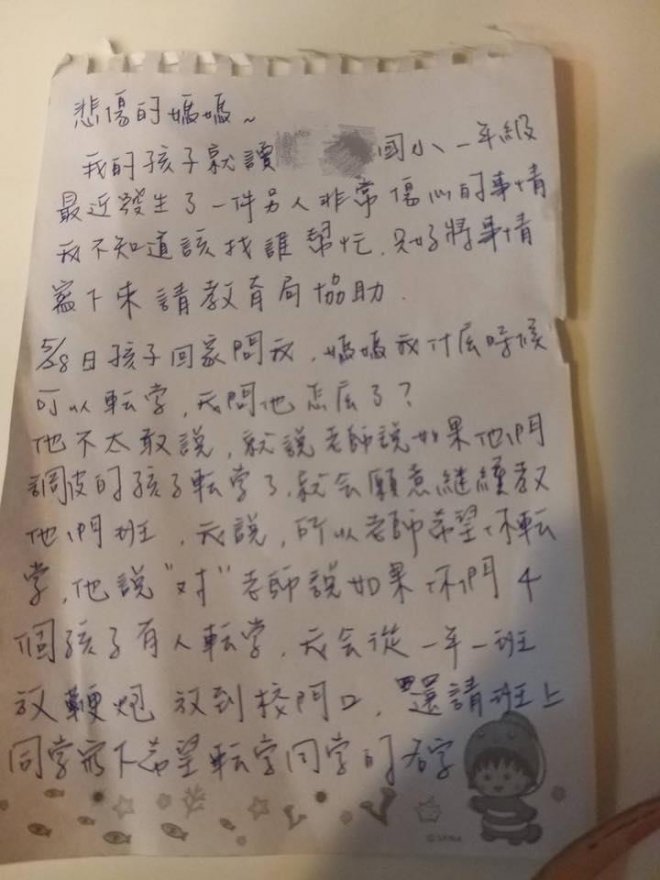 悲傷的媽媽~
我的孩子就讀 國小一年級
最近發生了一件另人非常傷心的事情
我不知道該找誰幫忙.只好將事情
寫下來請教育局協助.
5/28日孩子回家問我.媽媽我什麼時候
可以転学,我問他怎麼了?
他不太敢說,就說老師說如果他們
調皮的孩子転学了.就会願意継續教
他們班,我說,所以老師希望你転
学.他說"对"老師說如果你們4
個孩子有人転学.我会從一年一班
放鞭炮放到校門口.還請班上
同学寫下希望転学同学的名字